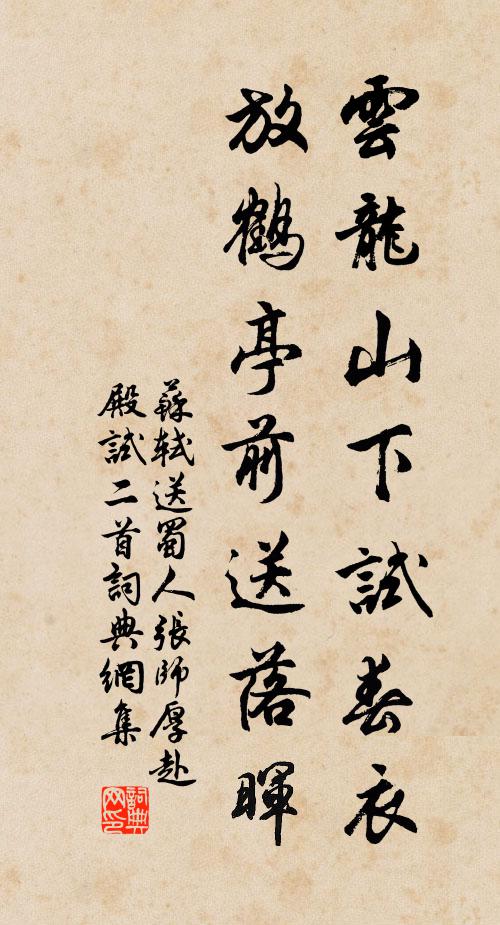 雲龍山下試春衣
放鶴亭前送落暉
蘇軾送蜀人張師厚赴
殿試二首詞典網集
詞典
网印